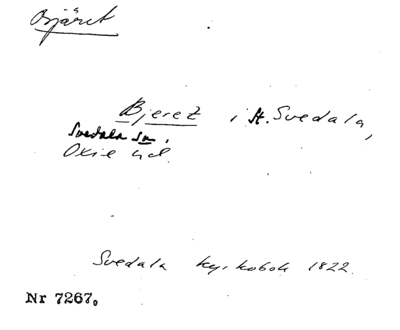 Bjäret
Bjeret i St. Svedala,
Svedala sn.
Oxie hd.
Svedala kyrkobok 1822.
Nr 7267.